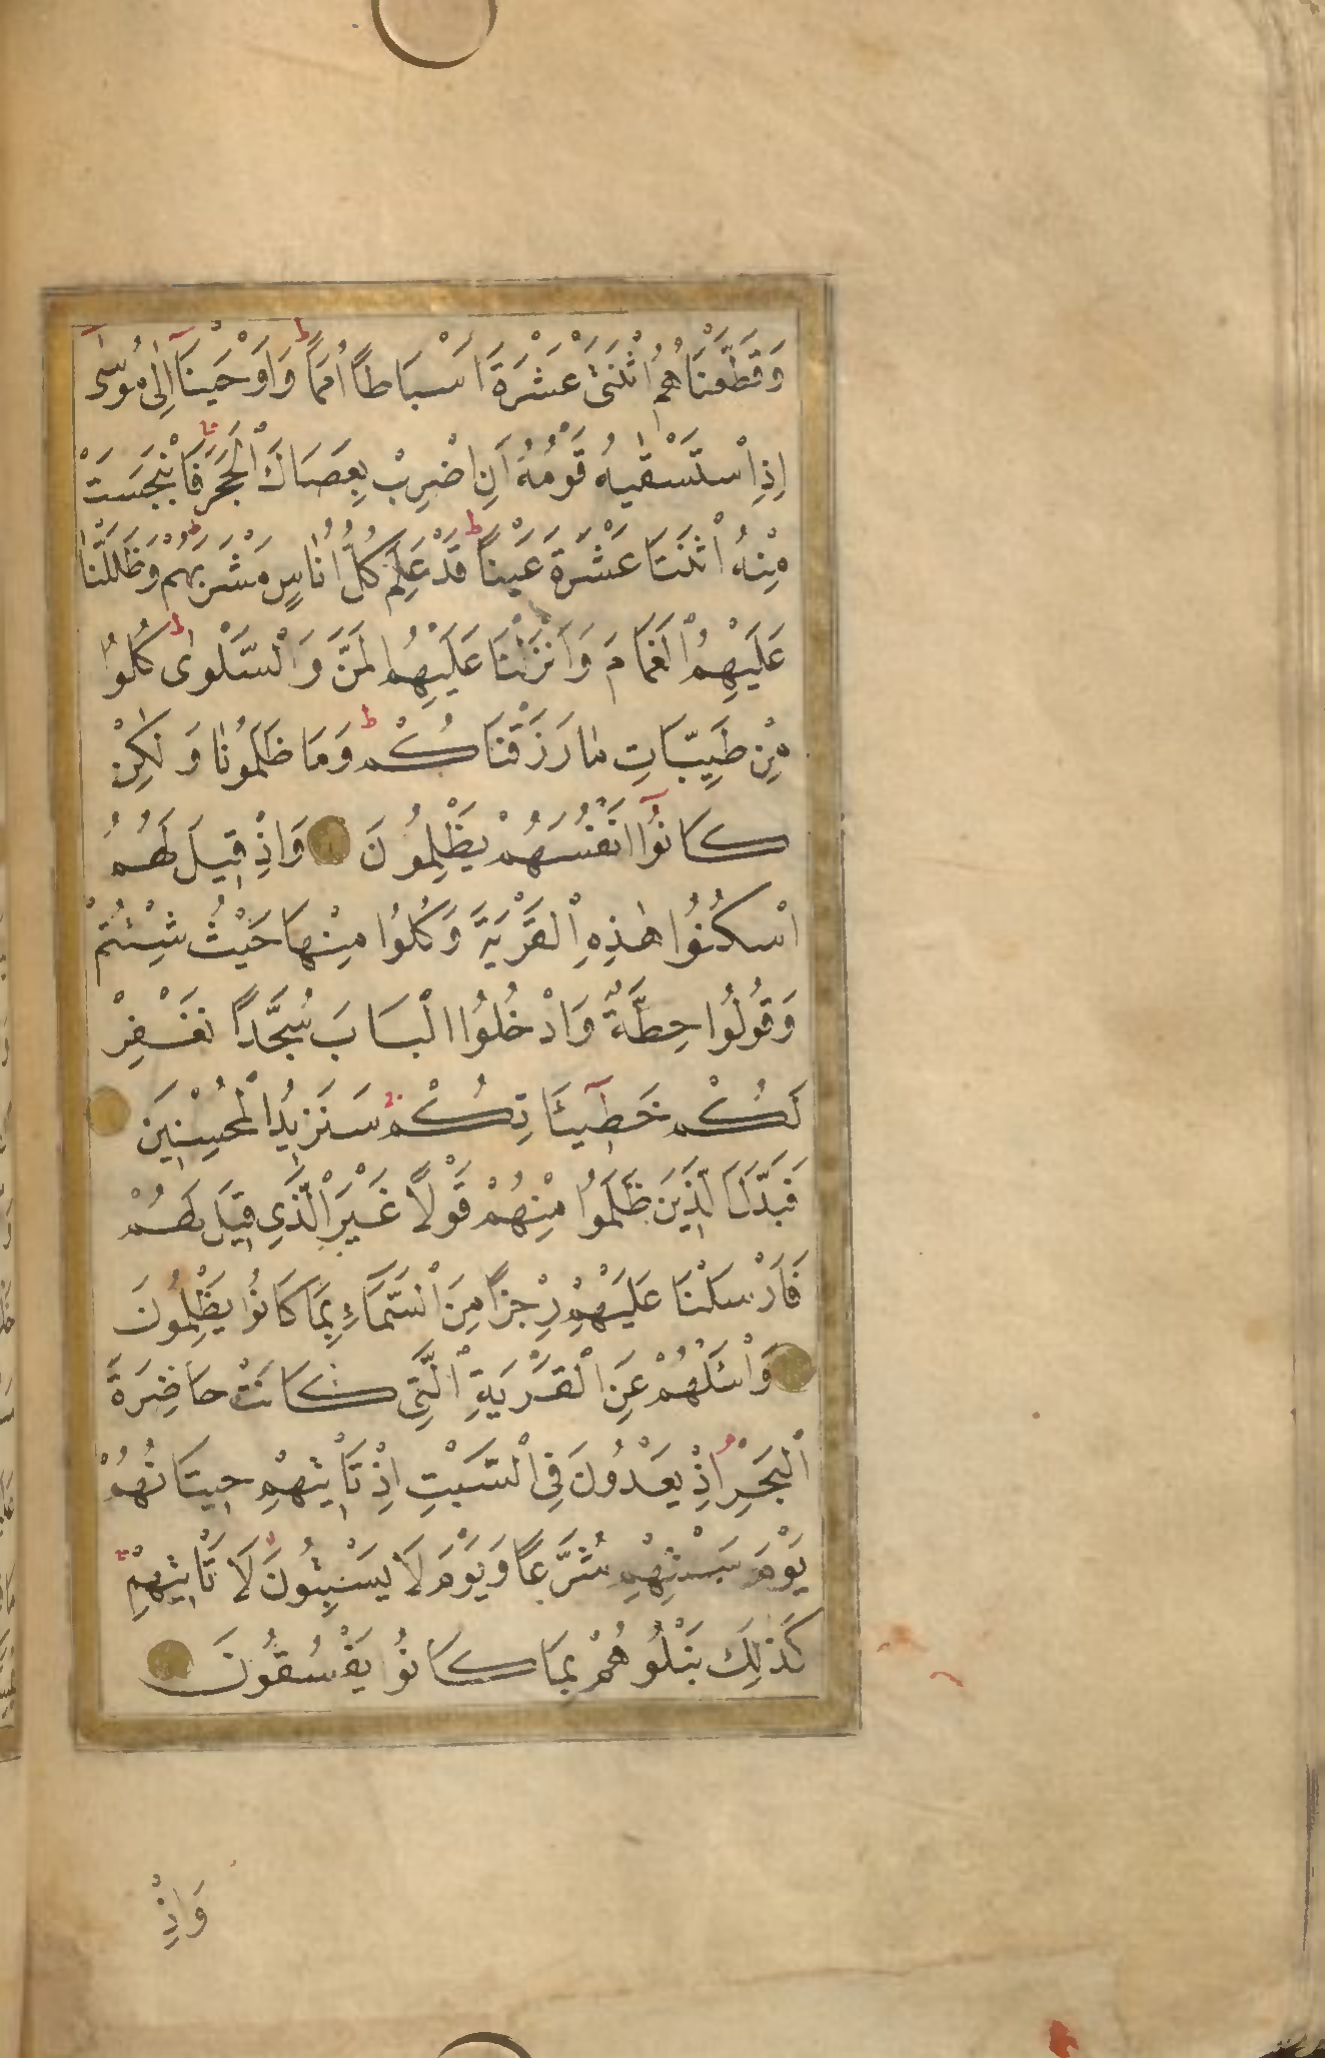 وَقَطَّعْنَاهُمُ اثْنَتَىْ عَشْرَةَ اَسْبَاطًا اُمَمًا ط وَاَوْحَيْنَٓا اِلٰى مُوسٰٓى
اِذِ اسْتَسْقٰيهُ قَوْمُهُ اَنِ اضْرِبْ بِعَصَاكَ الْحَجَرَ فَانْبَجَسَتْ
مِنْهُ اثْنَتَا عَشْرَةَ عَيْنًا ط قَدْ عَلِمَ كُلُّ اُنَاسٍ مَشْرَبَهُمْ ط وَظَلَّلْنَا
عَلَيْهِمُ الْغَمَامَ وَاَنْزَلْنَا عَلَيْهِمُ الْمَنَّ وَالسَّلْوٰى ط كُلُوا
مِنْ طَيِّبَاتِ مَا رَزَقْنَاكُمْ ط وَمَا ظَلَمُونَا وَلٰكِنْ
كَانُوٓا اَنْفُسَهُمْ يَظْلِمُونَ وَاِذْ قِيلَ لَهُمُ
اسْكُنُوا هٰذِهِ الْقَرْيَةَ وَكُلُوا مِنْهَا حَيْثُ شِئْتُمْ
وَقُولُوا حِطَّةٌ وَادْخُلُوا الْبَابَ سُجَّدًا نَغْفِرْ
لَكُمْ خَطِٓيئَاتِكُمْ سَنَزِيدُ الْمُحْسِنِينَ
فَبَدَّلَ الَّذِينَ ظَلَمُوا مِنْهُمْ قَوْلًا غَيْرَ الَّذِى قِيلَ لَهُمْ
فَاَرْسَلْنَا عَلَيْهِمْ رِجْزًا مِنَ السَّمَٓاءِ بِمَا كَانُوا يَظْلِمُونَ
وَاسْئَلْهُمْ عَنِ الْقَرْيَةِ الَّتِى كَانَتْ حَاضِرَةَ
الْبَحْرِ اِذْ يَعْدُونَ فِى السَّبْتِ اِذْ تَاْتِيهِمْ حِيتَانُهُمْ
يَوْمَ سَبْتِهِمْ شُرَّعًا وَيَوْمَ لَا يَسْبِتُونَ لَا تَاْتِيهِمْ
كَذٰلِكَ نَبْلُوهُمْ بِمَا كَانُوا يَفْسُقُونَ
وَاِذْ